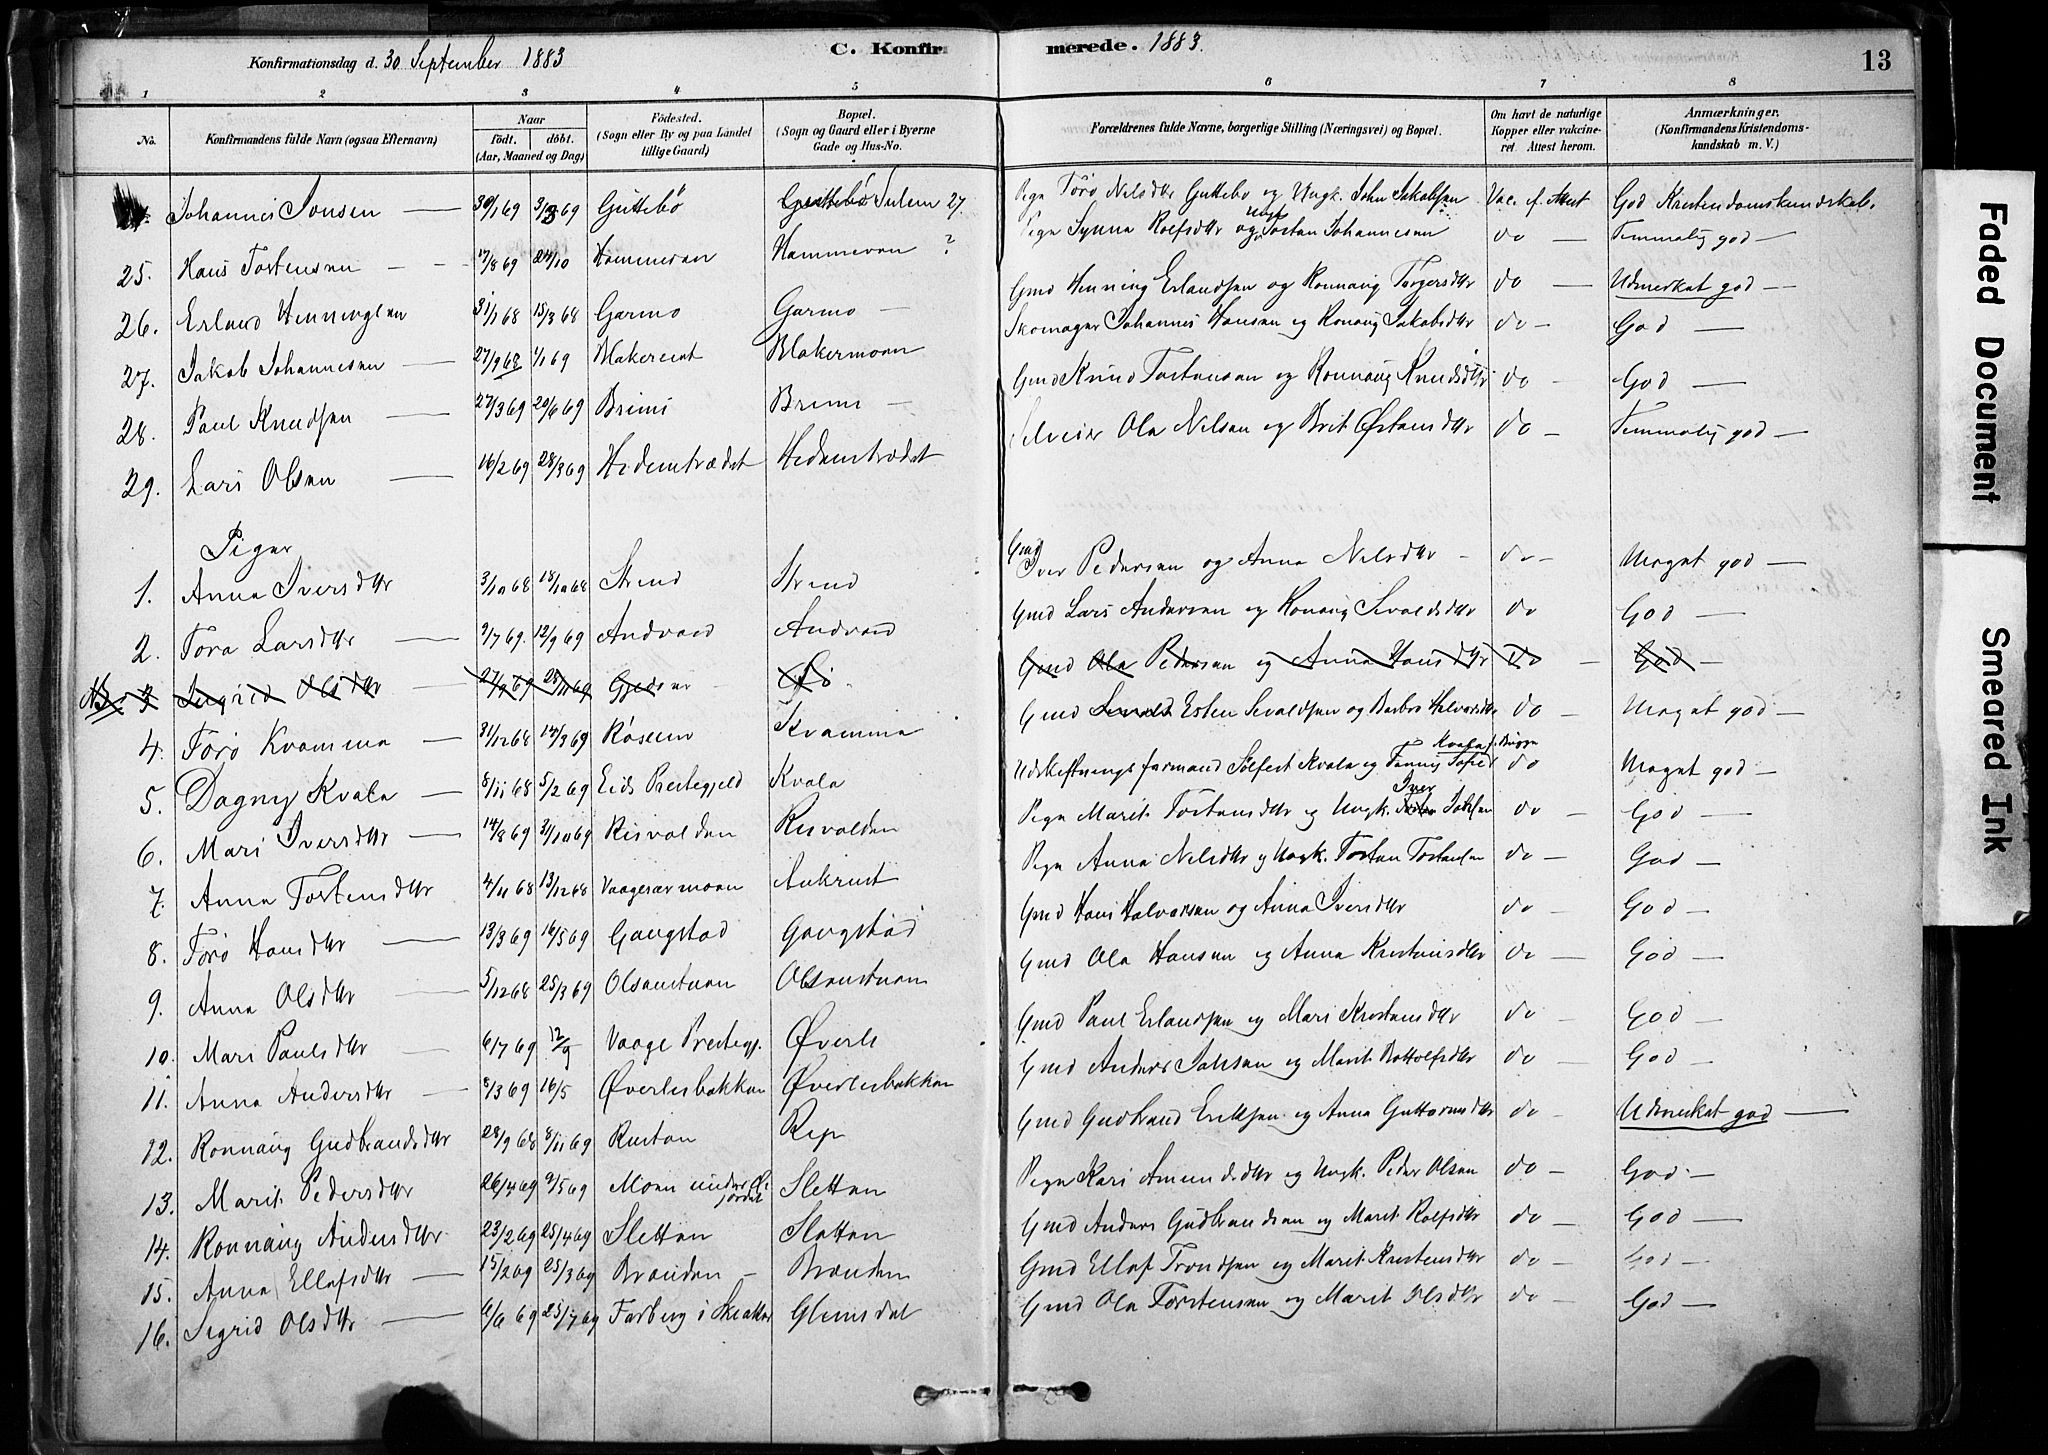 Konfirmationsdag d. 30 September 1883
C. Konfirmerede. 1883.
13
1 2 3 4 5 6 7 8
No. Konfirmandens fulde Navn (ogsaa Efternavn) Naar født. døbt. (Aar, Maaned og Dag) Fødested. (Sogn eller By og paa Landet tillige Gaard) Bopæl. (Sogn og Gaard eller i Byerne Gade og Hus-No. Forældrenes fulde Navne, borgerlige Stilling (Næringsvei) og Bopæl. Om havt de naturlige Kopper eller vakcineret. Attest herom. Anmærkninger. (Konfirmandens Kristendomskundskab m. V.)
Johannes Jonsen 30/1 69 3/3 69 Guttebø Guttebø Sulem 27. Pige Törö Nelsdttr Guttebø og Ungk. John Jakobsen Vac. f. Attest God Kristendomskundskab.
25. Hans Tostensen 17/8 69 24/10 Hammeren Hammeren ? Pige Synna Rolfsdttr og Ungk Tostan Johannesen do Temmelig god
26. Erland Henningsen 31/1 68 15/3 68 Garmo Garmo Gmd Henning Erlandsen og Ronnaug Torgersdttr do Udmerket god
27. Jakob Johannesen 27/9 68 1/1 69 Blakereint Blakermoen Skomager Johannes Hansen og Ronaug Jakobsdttr do God
28. Paul Knudsen 27/3 69 20/6 69 Brimi Brimi Gmd Knud Tostensen og Ronnaug Knudsdttr do God
29. Lars Olsen 16/2 69 28/3 69 Hedemtrædet Hedemtrædet Selveier Ola Nelsen og Brit Østensdttr do Temmelig god
Piger
1. Anna Iversdttr 3/10 68 18/10 68 Strind Strind Gmd Iver Pedersen og Anna Nelsdttr do Meget god
2. Tora Larsdttr 9/7 69. 12/9 69 Andvord Andvord Gmd Lars Andersen og Ronaug Sevaldsdttr do God
3 Ingrid Olsdttr 27/9 69 28/11 69 Gjedser Gmd Ola Pedersen og Anna Hansdttr do God
4. Törö Kvamma 31/12 68 14/3 69 Røseim Kvamma Gmd Esten Sevaldsen og Barbro Halvorsdttr do Meget god
5. Dagny Kvale 8/11 68 5/2 69 Eids Prestegjeld Kvala Udskiftningsformand Sølfest Kvale og Fanny Sofie Kvale f. Brügge do Meget god
6. Mari Iversdttr 14/8 69 31/10 69 Risvolden Risvolden Pige Marit Tostensdttr og Ungk. Iver Jonsen do God
7. Anna Tostensdttr 4/11 68 13/12 68 Vaagesærmoen Aukrust Pige Anna Nelsdttr og Ungk. Tosten Tostensen do God
8. Törö Hansdttr 13/3 69 16/5 69 Gaugstad Gaugstad Gmd Hans Halvorsen og Anna Iversdttr do God
9. Anna Olsdttr 5/12 68 25/3 69 Olsenstuen Olsenstuen Gmd Ola Hansen og Anna Kristensdttr do God
10. Mari Paulsdttr 6/7 69 12/9 Vaage Prestegj. Øverli Gmd Paul Erlandsen og Mari Kristensdttr do God
11. Anna Andersdttr 8/3 69 16/5 Øverlisbakken Øverlisbakken Gmd Anders Johsen og Marit Bottolfsdttr do God
12. Ronnaug Gudbrandsdttr 28/9 68 8/11 69 Rusten Rep Gmd Gudbrand Eriksen og Anna Guttormsdttr do Udmerket god
13. Marit Pedersdttr 26/4 69 9/5 69 Moen under Sletten Pige Kari Amundsdttr og Ungk. Peder Olsen do God
14. Ronnaug Andersdttr 23/2 69 25/4 69 Sletten Sletten Gmd Anders Gudbrandsen og Marit Rolfsdttr do God
15. Anna Ellefsdttr 15/2 69 25/3 69 Brenden Brenden Gmd Ellef Trondsen og Marit Kristensdttr do God
16. Sigrid Olsdttr 6/6 69 25/7 69 Forberg i Skiaker Glemsdal Gmd Ola Torstensen og Marit Olsdttr do God
Faded Document
Smeared Ink